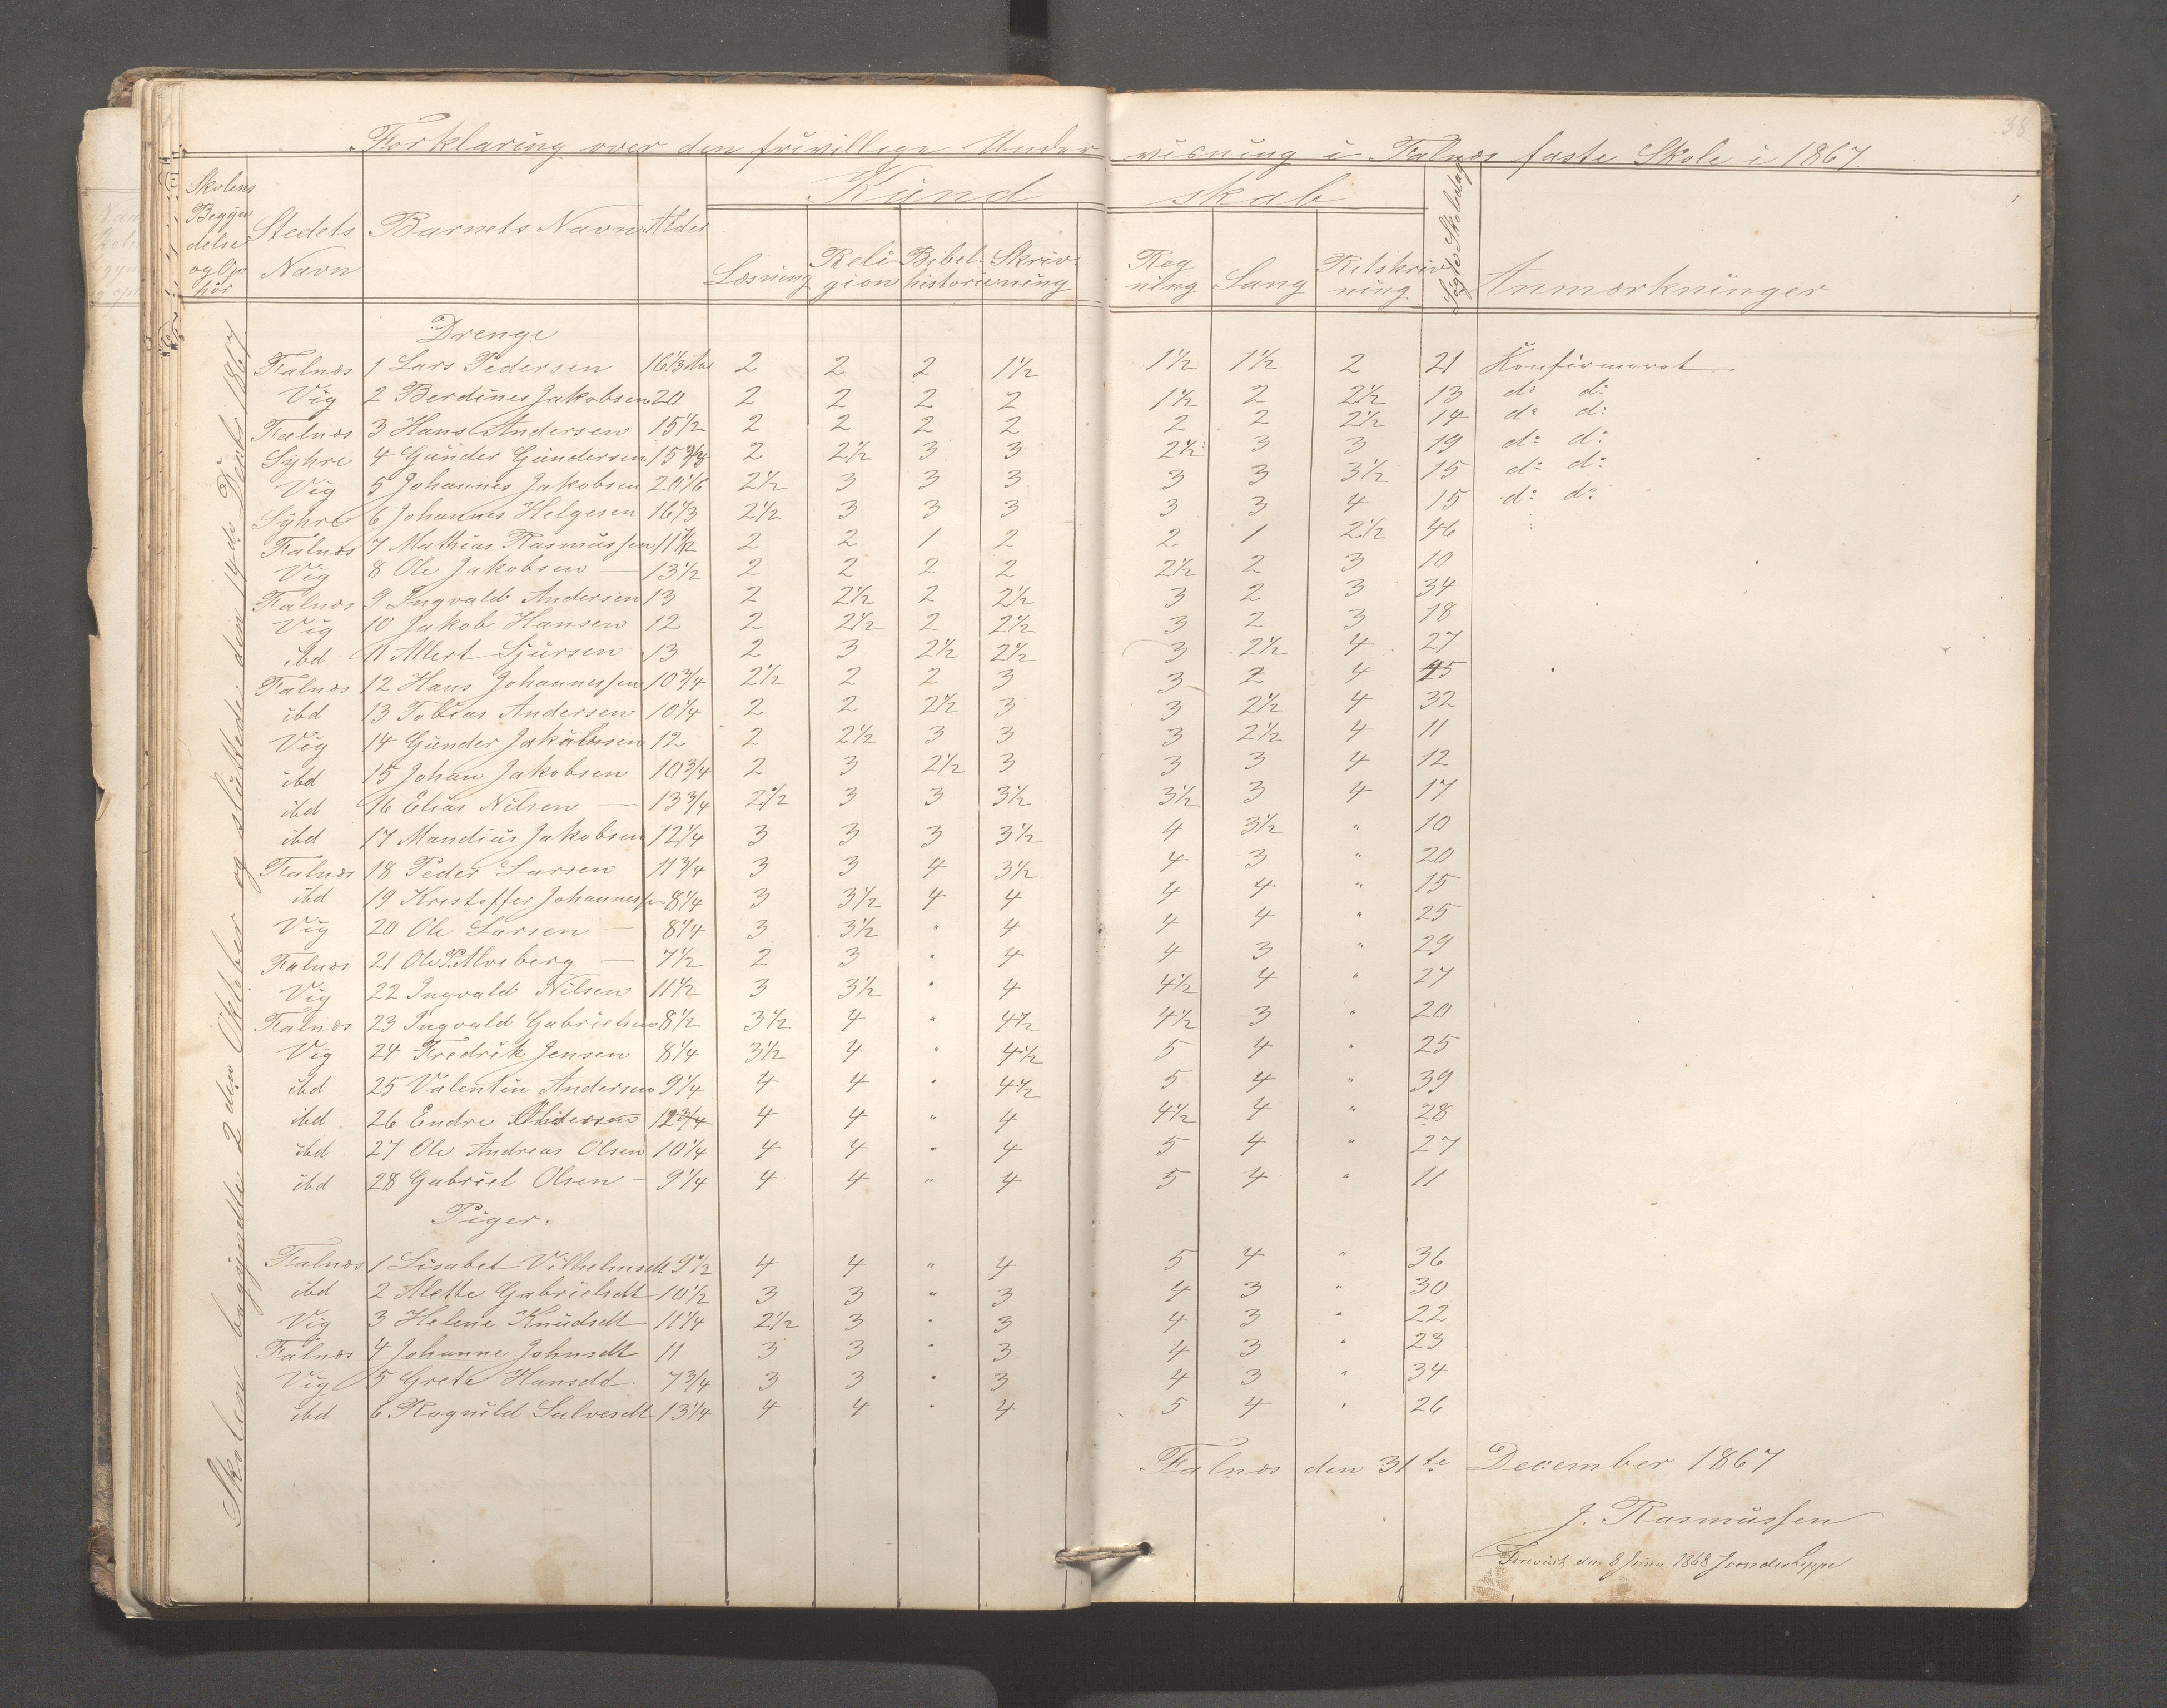 38
Forklaring over den frivillege Undervisning i Falnæs faste Skole i 1867.
Kund skab
Skolens Begyndelse og Ophør | Stedets Navn | Barnets Navn | Alder | Læsning | Religion | Bibelhistorie | Skrivning | Regning | Sang | Retskrivning | Søgte Skoledage | Anmærkninger
Skolen begyndte 2den Oktober og sluttede den 14de Decbr 1867.
Drenge
Falnæs 1 Lars Pedersen 16 1/3 Aar 2 2 2 1 1/2 1 1/2 1 1/2 2 21 Konfirmeret
Vig 2 Berdines Jakobsen 20 2 2 2 2 1 1/2 2 2 1/2 13 do do
Falnæs 3 Hans Andersen 15 1/2 2 2 2 2 2 2 2 1/2 14 do do
Syhre 4 Gunder Gundersen 15 3/4 2 2 1/2 3 3 2 1/2 3 3 19 do do
Vig 5 Johannes Jakobsen 20 1/6 2 1/2 3 3 3 3 3 3 1/2 15 do do
Syhre 6 Johannes Helgesen 16 1/3 2 1/2 3 3 3 3 3 4 15 do do
Falnæs 7 Mathias Rasmussen 11 1/2 2 2 1 2 2 1 2 1/2 46
Vig 8 Ole Jakobsen 13 1/2 2 2 2 2 2 1/2 2 3 10
Falnæs 9 Ingvald Andersen 13 2 2 1/2 2 2 1/2 3 2 3 34
Vig 10 Jakob Hansen 12 2 2 1/2 2 2 1/2 3 2 3 18
ibd 11 Allert Sjursen 13 2 3 2 1/2 2 1/2 3 2 1/2 4 27
Falnæs 12 Hans Johannessen 10 3/4 2 1/2 2 2 3 3 2 4 45
ibd 13 Tobias Andersen 10 1/4 2 2 2 1/2 3 3 2 1/2 4 32
Vig 14 Gunder Jakobsen 12 2 2 1/2 3 3 3 2 1/2 4 11
ibd 15 Johan Jakobsen 10 3/4 2 3 2 1/2 3 3 3 4 12
ibd 16 Elias Nilsen 13 3/4 2 1/2 3 3 3 1/2 3 1/2 3 4 17
ibd 17 Mandius Jakobsen 12 1/4 3 3 3 3 1/2 4 3 1/2 " 10
Falnæs 18 Peder Larsen 11 3/4 3 3 4 3 1/2 4 3 " 20
ibd 19 Kristoffer Johannessen 8 1/4 3 3 1/2 4 4 4 4 " 15
Vig 20 Ole Larsen 8 1/4 3 3 1/2 " 4 4 4 " 25
Falnæs 21 Ole P. Alveberg 7 1/2 2 3 " 4 4 3 " 29
Vig 22 Ingvald Nilsen 11 1/2 3 3 1/2 " 4 4 1/2 4 " 27
Falnæs 23 Ingvald Gabrielsen 8 1/2 3 1/2 4 " 4 1/2 4 1/2 3 " 20
Vig 24 Fredrik Jensen 8 1/4 3 1/2 4 " 4 1/2 5 4 " 25
ibd 25 Valentin Andersen 9 1/4 4 4 " 4 1/2 5 4 " 39
ibd 26 Endre 12 3/4 4 4 " 4 4 1/2 4 " 28
ibd 27 Ole Andreas Olsen 10 1/4 4 4 " 4 5 4 " 27
ibd 28 Gabriel Olsen 9 1/4 4 4 " 4 5 4 " 11
Piger.
Falnæs 1 Lisabet Vilhelmsdt 9 1/2 4 4 " 4 5 4 " 36
ibd 2 Mette Gabrielsdt 10 1/2 3 3 " 3 4 3 " 30
Vig 3 Helene Knudsdt 11 1/4 2 1/2 3 " 3 4 3 " 22
Falnæs 4 Johanne Johnsdt 11 3 3 " 3 4 3 " 23
Vig 5 Grete Hansdt 7 3/4 3 3 " 3 4 3 " 34
ibd 6 Ragnild Salvesdt 13 1/4 4 4 " 4 5 4 " 26
Falnæs den 31te December 1867
J. Rasmussen
Forevist den 8 Juni 1868